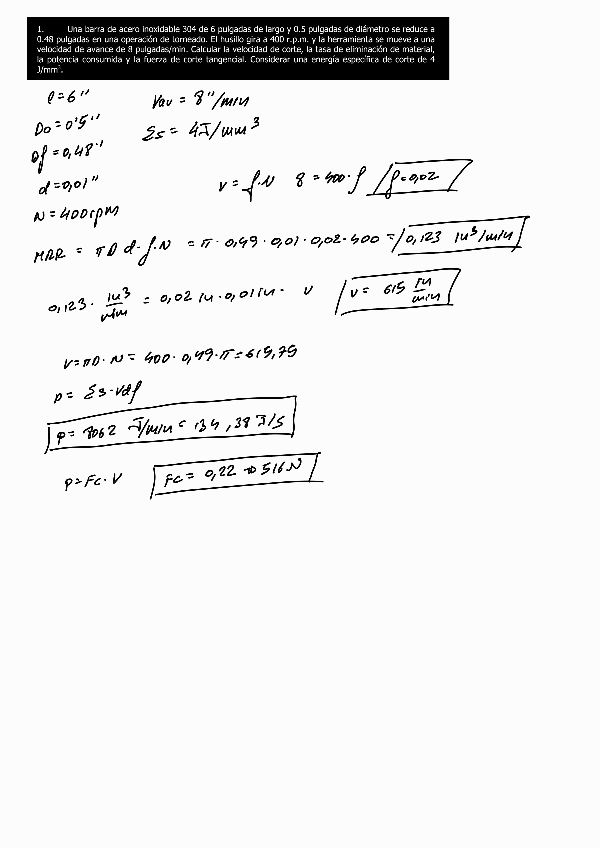 1. Una barra de acero inoxidable 304 de 6 pulgadas de largo y 0.5 pulgadas de diámetro se reduce a
0.48 pulgadas en una operación de torneado. El husillo gira a 400 r.p.m. y la herramienta se mueve a una
velocidad de avance de 8 pulgadas/min. Calcular la velocidad de corte, la tasa de eliminación de material,
la potencia consumida y la fuerza de corte tangencial. Considerar una energía específica de corte de 4
J/mm³.
l=6" Vav = 8"/min
Do=0'5" Es = 4J/mm³
Df=0,48"
d=0,01" v = f·N 8=400·f f=0,02
N=400rpm
MRR = πD d·f·N = π·0,49·0,01·0,02·400 = 0,123 in³/min
0,123 · in³/min = 0,02 in·0,01 in· v v= 615 in/min
v=πD·N= 400·0,49·π=615,75
p= Es·vdf
p= 8062 J/min = 134,38 J/s
p=Fc·v Fc= 0,22 ⇒ 516N